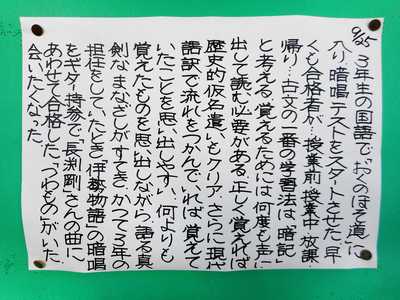 9/25 3年生の国語で「おくのほそ道」に
入り、暗唱テストをスタートさせた。早
くも合格者が…授業前、授業中、放課
帰り…古文の一番の学習法は、「暗記」
と考える。覚えるためには何度も声に
出して読む必要がある。正しく覚えれば
歴史的仮名遣いもクリア。さらに現代
語訳で流れをつかんでいれば、覚えて
いたことを思い出しやすい。何よりも
覚えたものを思い出しながら、語る真
剣なまなざしがすてき。かつて3年の
担任をしていたとき「伊勢物語」の暗唱
をギター持参で長渕剛さんの曲に
あわせて合格した、「つわもの」がいた。
会いたくなった。